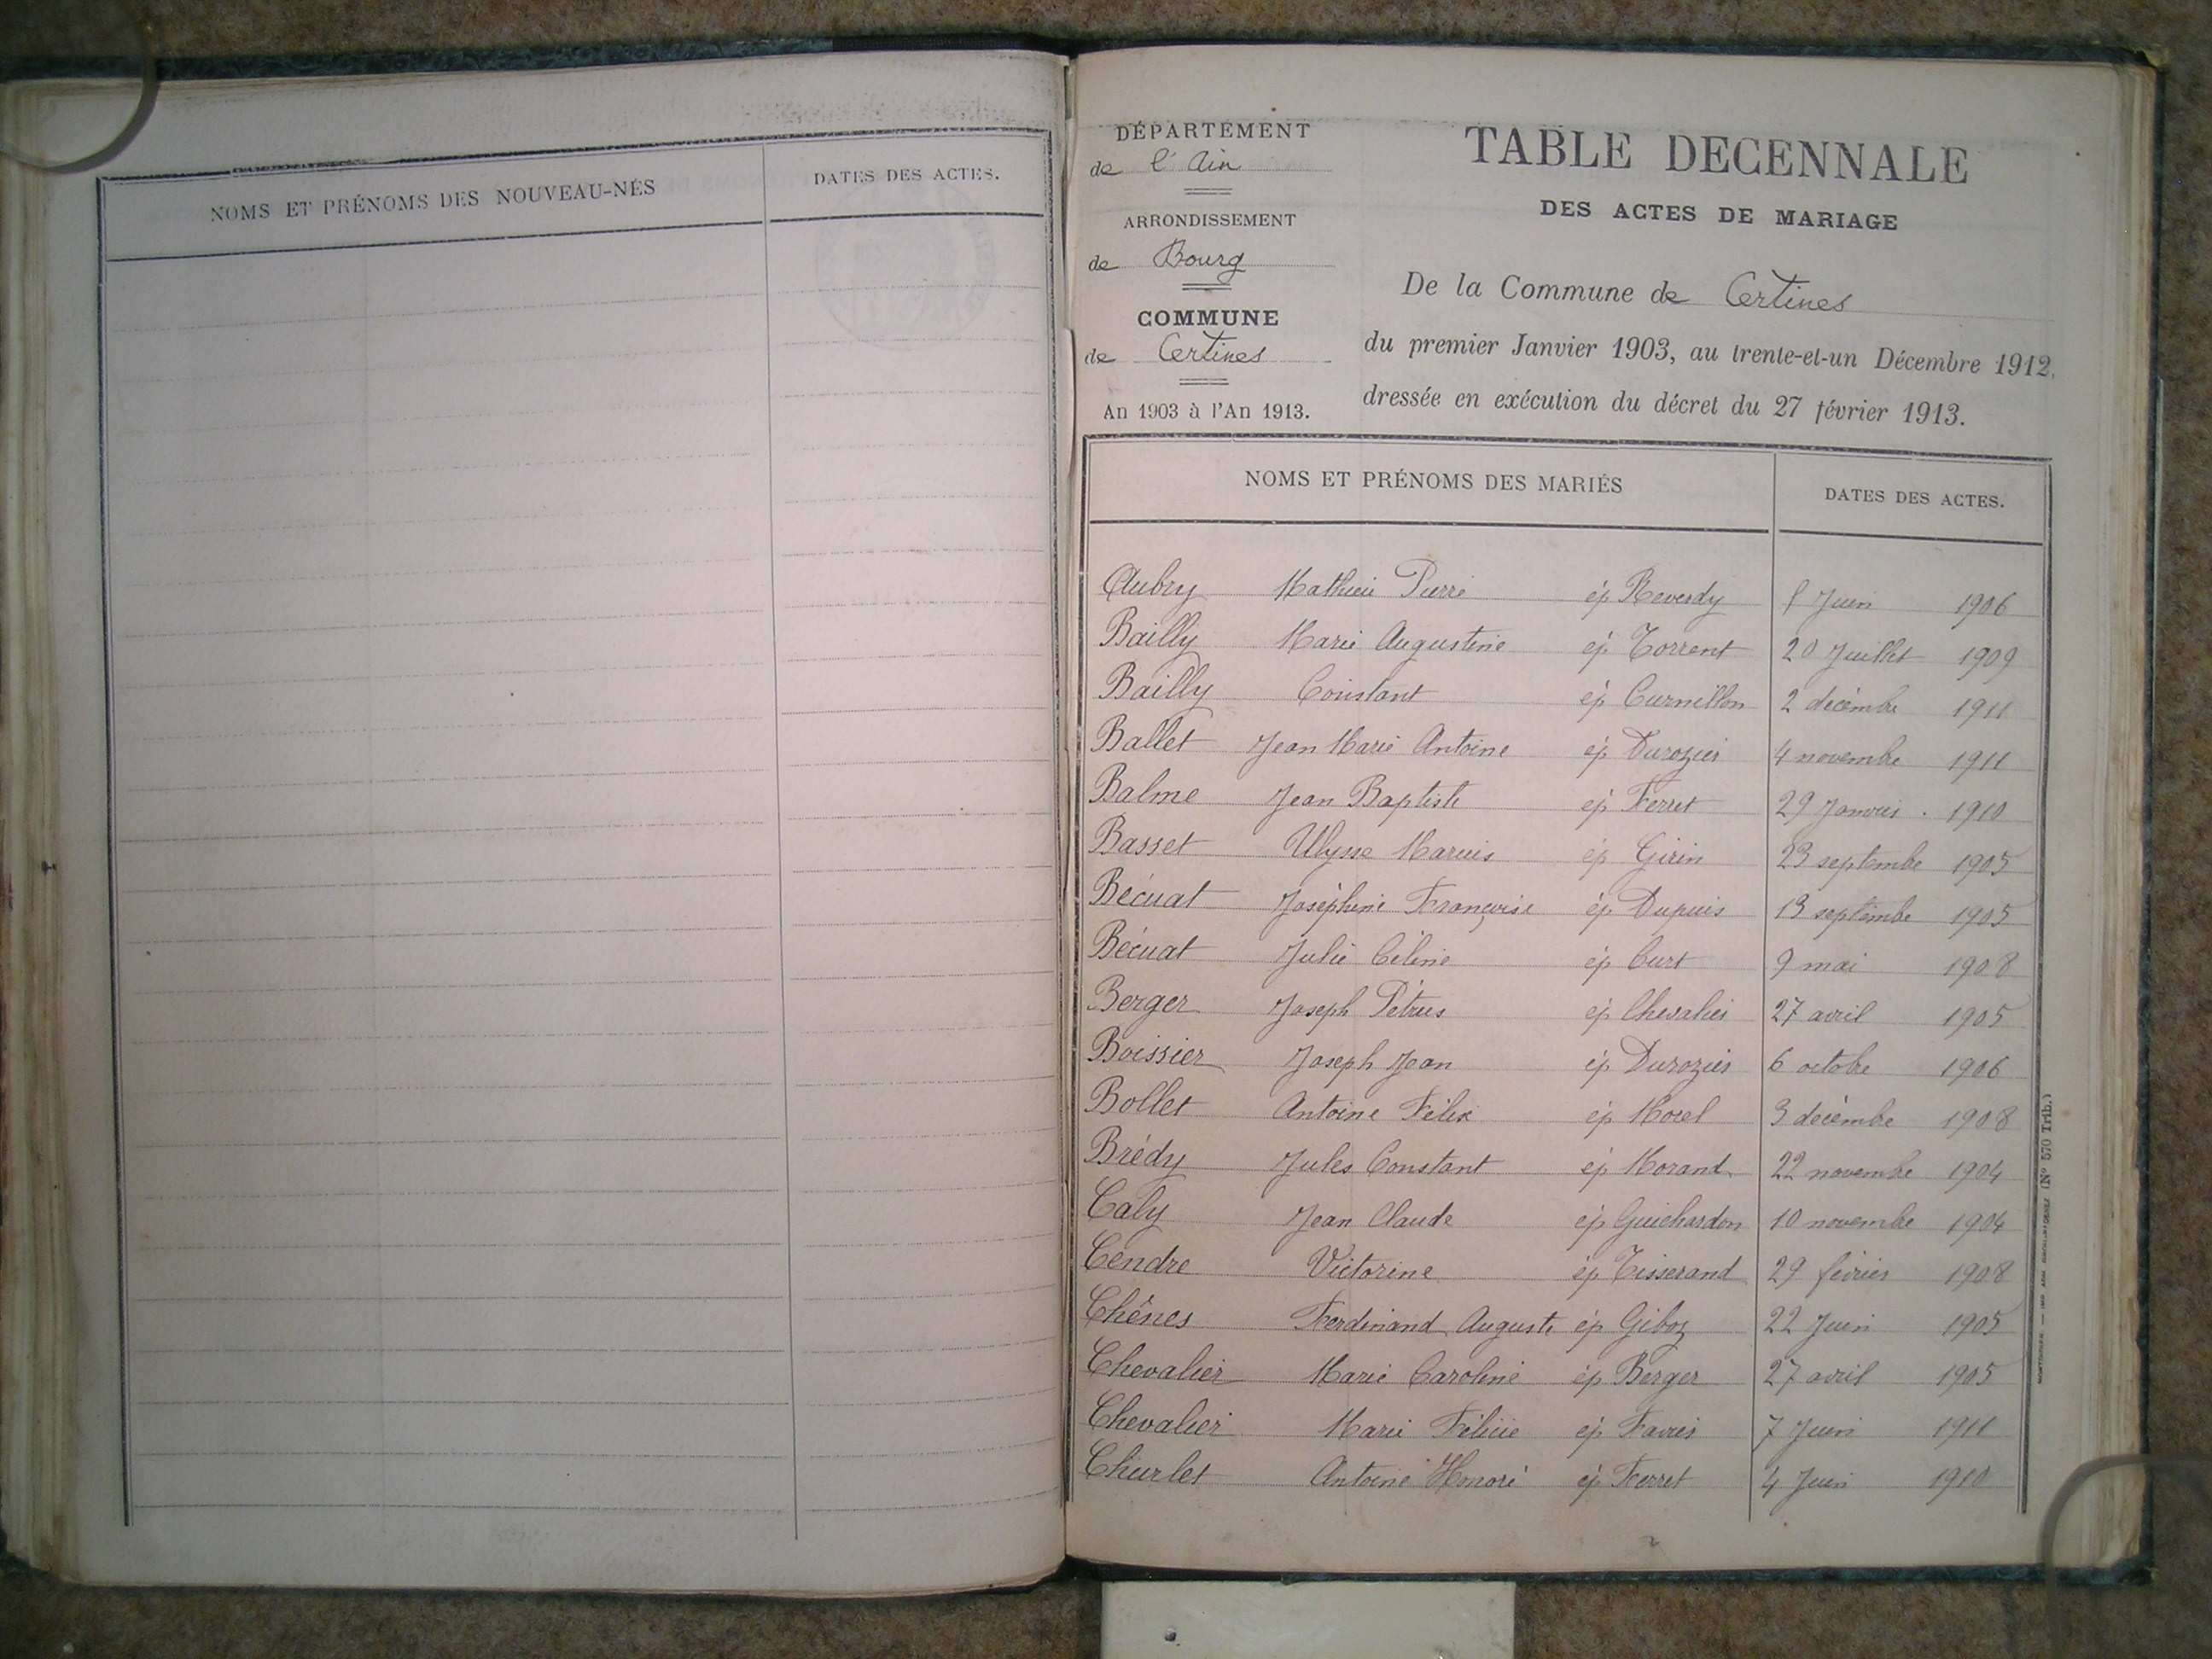 NOMS ET PRÉNOMS DES NOUVEAU-NÉS
DATES DES ACTES.
DÉPARTEMENT
de l'Ain
ARRONDISSEMENT
de Bourg
COMMUNE
de Certines
An 1903 à l'An 1913.
TABLE DECENNALE
DES ACTES DE MARIAGE
De la Commune de Certines
du premier Janvier 1903, au trente-et-un Décembre 1912,
dressée en exécution du décret du 27 février 1913.
NOMS ET PRÉNOMS DES MARIÉS DATES DES ACTES.
Aubry Mathieu Pierre ép Reverdy 1 Juin 1906
Bailly Marie Augustine ép Torrent 20 Juillet 1909
Bailly Constant ép Curnillon 2 décembre 1911
Ballet Jean Marie Antoine ép Durozier 4 novembre 1911
Balme Jean Baptiste ép Ferret 29 Janvier 1910
Basset Ulysse Marius ép Girin 23 septembre 1905
Bécuat Joséphine Françoise ép Dupuis 13 septembre 1905
Bécuat Julie Céline ép Curt 9 mai 1908
Berger Joseph Pétrus ép Chevalier 27 avril 1905
Boissier Joseph Jean ép Durozier 6 octobre 1906
Bollet Antoine Félix ép Morel 3 décembre 1908
Brédy Jules Constant ép Morand 22 novembre 1904
Caly Jean Claude ép Guichardon 10 novembre 1904
Cendre Victorine ép Tisserand 29 février 1908
Chênes Ferdinand Auguste ép Giboz 22 Juin 1905
Chevalier Marie Caroline ép Berger 27 avril 1905
Chevalier Marie Félicie ép Favier 7 Juin 1911
Churlet Antoine Honoré ép Ferret 4 Juin 1910
(Nº 570 Trib.)